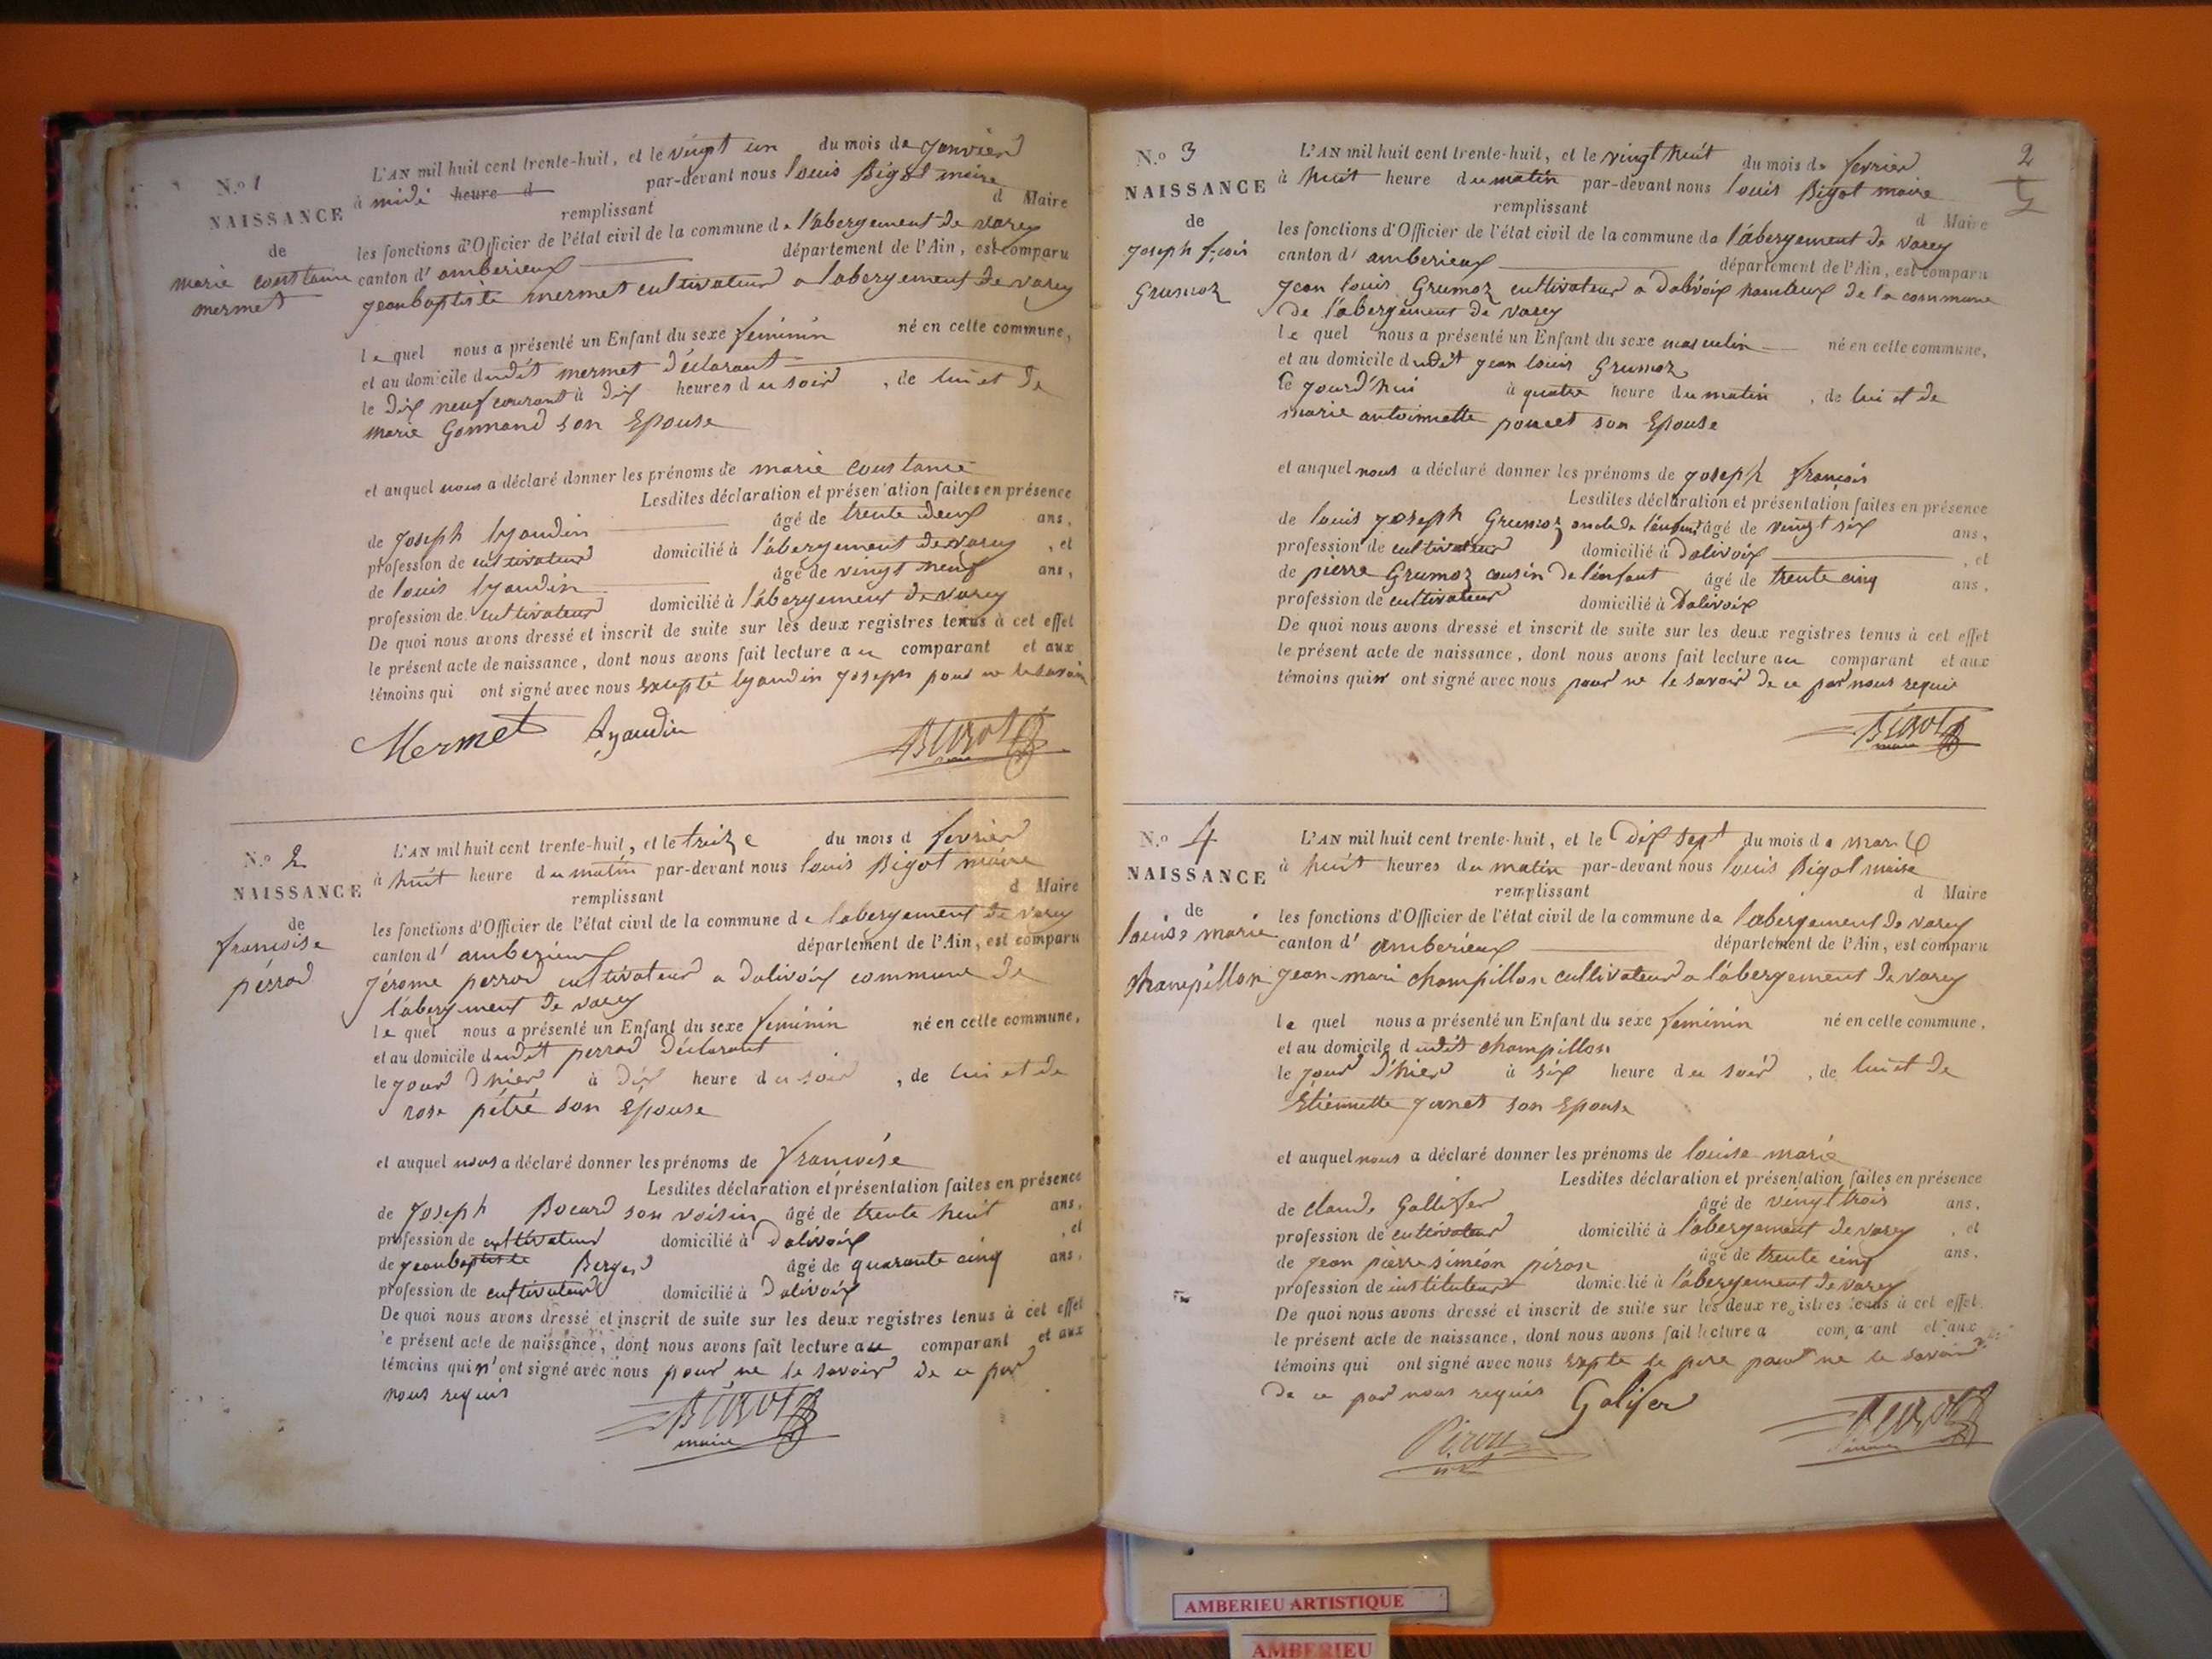 N.o 1
NAISSANCE
de
marie constance
mermet
L'AN mil huit cent trente-huit, et le vingt un du mois de janvier
à midi heure d par-devant nous louis Bigot maire
remplissant d Maire
les fonctions d'Officier de l'état civil de la commune de l'abergement de varey
canton d'amberieux département de l'Ain, est comparu
jeanbaptiste mermet cultivateur a labergement de varey
le quel nous a présenté un Enfant du sexe feminin né en cette commune,
et au domicile dudit mermet déclarant
le dix neuf courant à dix heures du soir, de lui et de
marie Gonnand son Epouse
et auquel nous a déclaré donner les prénoms de marie constance
Lesdites déclaration et présentation faites en présence
de joseph lyaudin âgé de trente deux ans,
profession de cultivateur domicilié à l'abergement de varey, et
de louis lyaudin âgé de vingt neuf ans,
profession de cultivateur domicilié à l'abergement de varey
De quoi nous avons dressé et inscrit de suite sur les deux registres tenus à cet effet
le présent acte de naissance, dont nous avons fait lecture au comparant et aux
témoins qui ont signé avec nous excepté lyaudin joseph pour ne le savoir
Mermet Lyaudin Bigot
N.o 2
NAISSANCE
de
francoise
pérrod
L'AN mil huit cent trente-huit, et le treize du mois d fevrier
à huit heure du matin par-devant nous louis Bigot maire
remplissant d Maire
les fonctions d'Officier de l'état civil de la commune de labergement de varey
canton d'amberieux département de l'Ain, est comparu
jérome perrod cultivateur a dalivoix commune de
l'abergement de varey
le quel nous a présenté un Enfant du sexe feminin né en cette commune,
et au domicile dudit perrod déclarant
le jour d'hier à dix heure du soir, de lui et de
rose pétré son épouse
et auquel nous a déclaré donner les prénoms de francoise
Lesdites déclaration et présentation faites en présence
de joseph Bocard son voisin âgé de trente huit ans,
profession de cultivateur domicilié à Dalivoix, et
de jeanbaptiste Berger âgé de quarante cinq ans,
profession de cultivateur domicilié à Dalivoix
De quoi nous avons dressé et inscrit de suite sur les deux registres tenus à cet effet
le présent acte de naissance, dont nous avons fait lecture au comparant et aux
témoins qui n'ont signé avec nous pour ne le savoir de ce par
nous requis
Bigot
maire
2
N.o 3
NAISSANCE
de
joseph fçois
Grumoz
L'AN mil huit cent trente-huit, et le vingt huit du mois de fevrier
à huit heure du matin par-devant nous louis Bigot maire
remplissant d Maire
les fonctions d'Officier de l'état civil de la commune de l'abergement de varey
canton d'amberieux département de l'Ain, est comparu
jean louis Grumoz cultivateur a Dalivoix hamteux de la commune
de l'abergement de varey
le quel nous a présenté un Enfant du sexe masculin né en cette commune,
et au domicile dudit jean louis Grumoz
le jourd'hui à quatre heure du matin, de lui et de
marie antoinette poncet son Epouse
et auquel nous a déclaré donner les prénoms de joseph françois
Lesdites déclaration et présentation faites en présence
de louis joseph Grumoz oncle de l'enfant âgé de vingt six ans,
profession de cultivateur domicilié à Dalivoix, et
de pierre Grumoz cousin de l'enfant âgé de trente cinq ans,
profession de cultivateur domicilié à Dalivoix
De quoi nous avons dressé et inscrit de suite sur les deux registres tenus à cet effet
le présent acte de naissance, dont nous avons fait lecture au comparant et aux
témoins qui n' ont signé avec nous pour ne le savoir de ce par nous requis
Bigot
maire
N.o 4
NAISSANCE
de
louise marie
champillon
L'AN mil huit cent trente-huit, et le Dix sept du mois de mars
à huit heures du matin par-devant nous louis Bigot maire
remplissant d Maire
les fonctions d'Officier de l'état civil de la commune de labergement de varey
canton d'amberieux département de l'Ain, est comparu
jean-mari champillon cultivateur a l'abergement de varey
le quel nous a présenté un Enfant du sexe feminin né en cette commune,
et au domicile dudit champillon
le jour d'hier à six heure du soir, de lui et de
Étiennette junet son Epouse
et auquel nous a déclaré donner les prénoms de louise marie
Lesdites déclaration et présentation faites en présence
de claude Gallifer âgé de vingt trois ans,
profession de cultivateur domicilié à l'abergement de varey, et
de jean pierre siméon piron âgé de trente cinq ans,
profession de instituteur domicilié à l'abergement de varey
De quoi nous avons dressé et inscrit de suite sur les deux registres tenus à cet effet
le présent acte de naissance, dont nous avons fait lecture a comparant et aux
témoins qui ont signé avec nous expte le pere pour ne le savoir
de ce par nous requis Galifer
Piron
Bigot
AMBERIEU ARTISTIQUE
AMBERIEU